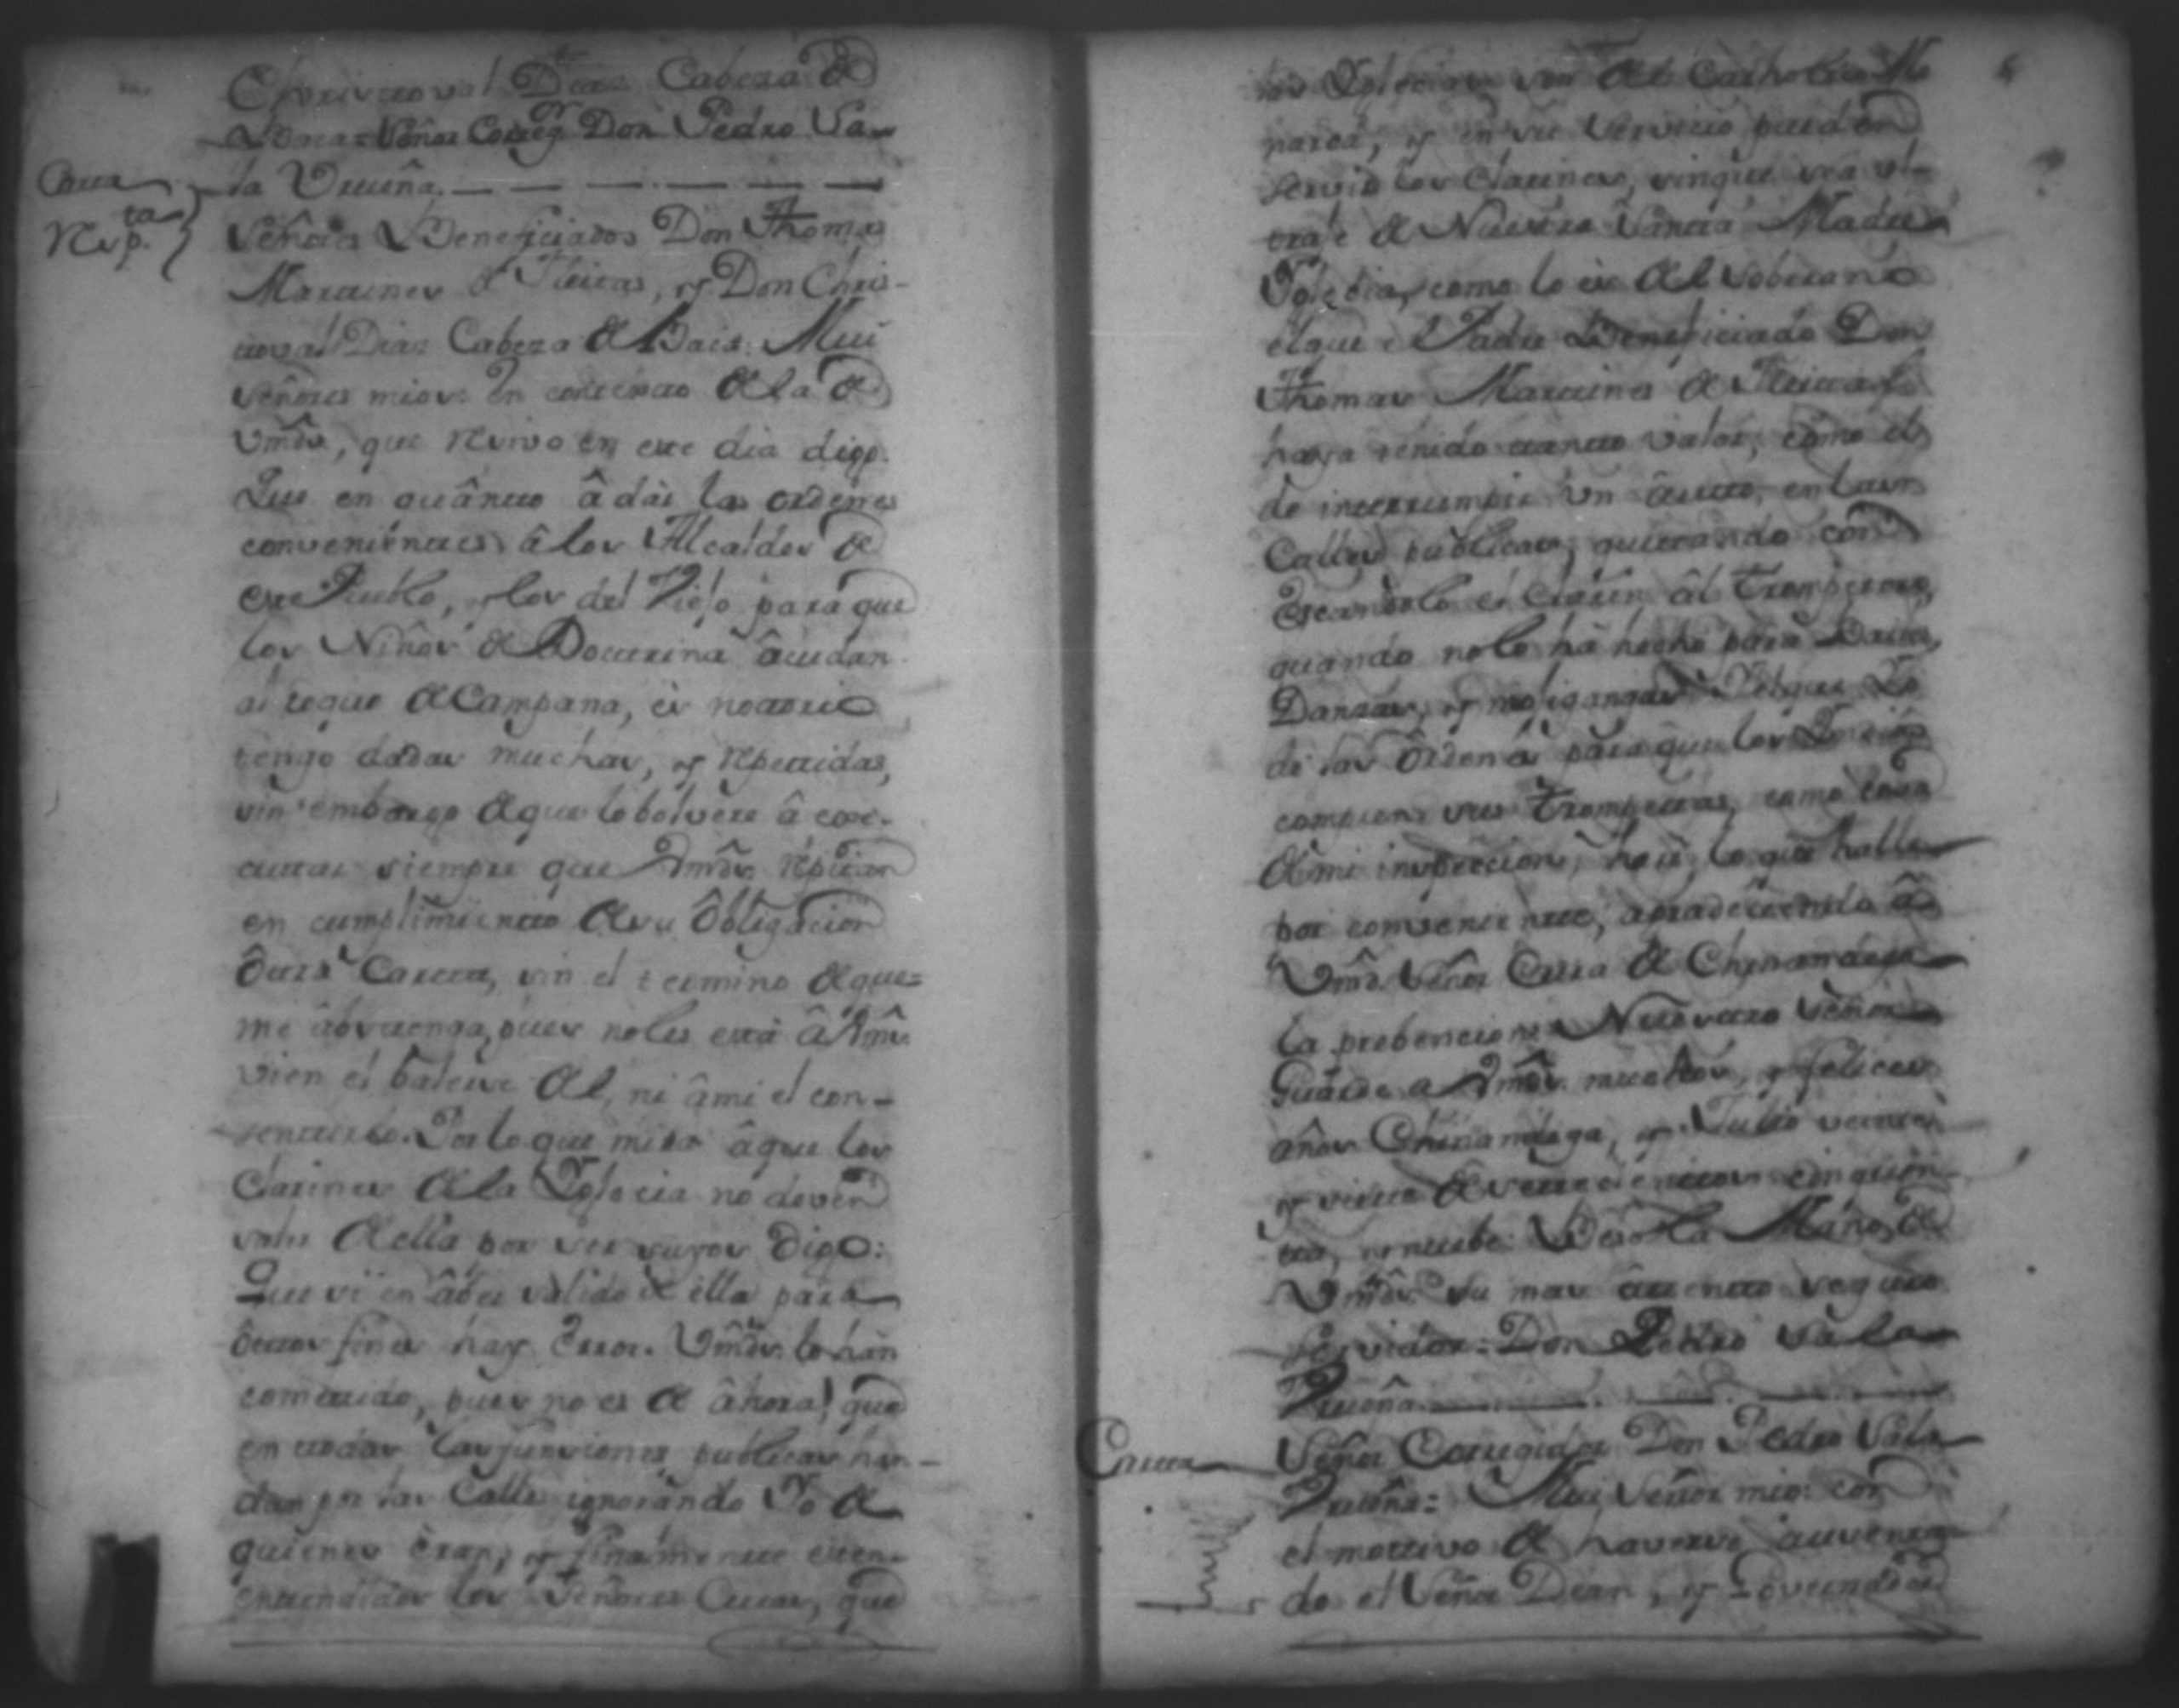 Christoval Diaz Cabeza de
Baca = Señor Correg.or Don Pedro Sa-
Carta la Vrueña. — — — — — —
Resp.ta Señores Beneficiados Don Thomas
Martines de Fleitas, y Don Chris-
toval Diaz Cabeza de Baca: Mui
señores mios: en contexto de la de
Vmds, que recivo en este dia digo.
Que en quânto â dàr las ordenes
convenièntes â los Alcaldes de
este Pueblo, y los del Viejo para que
los Niños de Doctrina âcudan
al toque de Campana, es notorio
tengo dadas muchas, y repetidas,
sin embargo de que lo bolvere â exe-
cutar siempre que Vmds. repitan
en cumplimiento de su Obligacion
Ôtra Carta, sin el termino de que
me âbstenga, pues no les està â Vmds.
vien el balerse del, ni âmi el con-
sentirlo. Por lo que mira âque los
Clarines de la Yglecia no deven
salir de ella por ser suyos Digo:
Que si en âver salido de ella para
ôtros fines hay Error. Vmds. lo han
cometido, pues no es de âhora, que
en todas las funsiones publicas han
dan por las Calles ignorando Yo de
quienes èran, y finalmente esten
entendidos los Señores Curas, que
las Yglecias son del Catholico Mo
narca, y en su servicio pueden
servir los Clarines, sin que sea ul-
traje de Nuestra Santa Madre
Yglecia, como lo es del Soberano
el que el Padre Beneficiado Don
Thomas Martines de Fleitas
haya tenido tanto valor, como el
de interrumpir un âcto, en las
Calles publicas, quitando con
Escandalo el Clarin âl Trompetero,
quando no lo ha hecho para Bailes,
Danzas, y mojigangas. Y el que Yo
dè las Ordenes para que los Yndios
compren sus Trompetas, como cosa
de mi inspeccion, harè lo que halle
por conveniente, agradeciendo â
Vmd. Señor Cura de Chinandega
la prebencion. Nuestro Señor
Guarde a Vmds. muchos, y felices
años Chinandega, y Julio veinte
y siete de setecientos cinquen-
ta, y nuebe. Beso la Mano de
Vmds. su mas âtento seguro
servidor: Don Pedro Sala
Vrueña. — — — — —
Carta Señor Corregidor Don Pedro Sala
Vrueña: Mui Señor mio: con
el motivo de haverse ausenta-
do el Señor Dean, y Governador